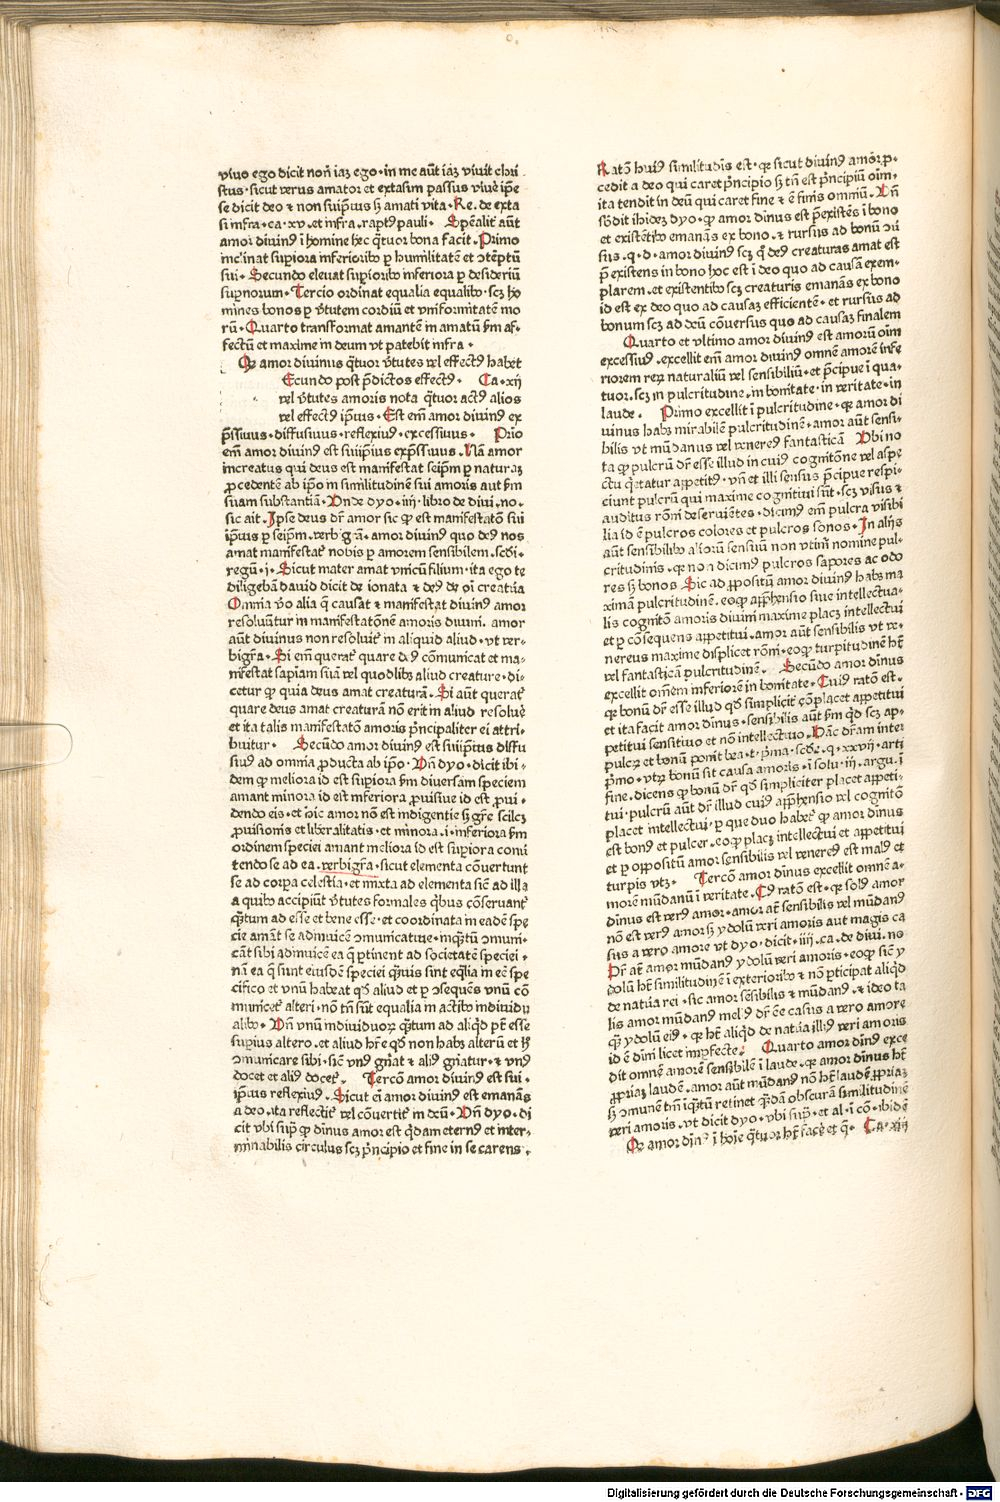 viuo ego dicit non̄ iaꝫ ego · in me aūt iaꝫ viuit chri
stus · sicut verus amator et extasim passus viuēs ip̄e
se dicit deo ⁊ non suip̄ius sꝫ amati vita · Re. de exta
si infra · ca · xv. et infra · raptꝰ pauli · Sp̄ealit̄ aūt
amor diuinꝰ ī homine hec q̄tuor bona facit · Primo
inclinat sup̄iora inferiorib⁹ ꝑ humilitatem et ↄtēptū
sui · Secundo eleuat sup̄iorib⁹ inferiora ꝑ desideriū
sup̄norum · Tercio ordinat equalia equalib⁹ · scꝫ ho
mines bonos ꝑ v̄tutem cordiū et vniformitatem mo
rū · Quarto transformat amantē in amatū ẜm af-
fectū et maxime in deum vt patebit infra ·
Qꝫ amor diuinus q̄tuor v̄tutes vel effectꝰ habet
Ecundo post p̄dictos effectꝰ · Ca · xij
vel v̄tutes amoris nota q̄tuor actꝰ alios
vel effectꝰ ip̄ius · Est em̄ amor diuinꝰ ex
p̄ssiuus · diffusiuus · reflexiuꝰ · excessiuus · Prīo
em̄ amor diuinꝰ est suiip̄ius exp̄ssiuus · Nā amor
increatus qui deus est manifestat seip̄m ꝑ naturaꝫ
ꝓcedentē ab ip̄o in similitudinē sui amoris aut ẜm
suam substantiā · Vnde dyo · iiij · libro de diui · no ·
sic ait · Ip̄se deus dr̄ amor sic ꝙ est manifestatō sui
ip̄ius ꝑ seip̄m · verbi gr̄a · amor diuinꝰ quo deꝰ nos
amat manifestat̄ nobis ꝑ amorem sensibilem · scd̄i ·
regū · j · Sicut mater amat vnicū filium · ita ego te
diligebā dauid dicit de ionata ⁊ deꝰ de oī creatūa
Omnia v̄o alia q̄ causat ⁊ manifestat diuinꝰ amor
resoluūtur in manifestatōnē amoris diuini · amor
aūt diuinus non resoluit̄ in aliquid aliud · vt ver-
bigr̄a · Si em̄ querat̄ quare dꝰ cōmunicat et ma-
nifestat sapiam̄ suā vel quodlibꝫ aliud creature · di-
cetur ꝙ quia deus amat creaturā · Si aūt querat̄
quare deus amat creaturā nō erit in aliud resoluē
et ita talis manifestatō amoris p̄ncipaliter ei attri-
buitur · Secūdo amor diuinꝰ est suiip̄ius diffu
siuꝰ ad omnia ꝓducta ab ip̄o · Vn̄ dyo · dicit ibi-
dem ꝙ meliora id est sup̄iora ẜm diuersam speciem
amant minora id est inferiora ꝓuisiue id est ꝓui ·
dendo eis · et hic amor nō est indigentie sꝫ gr̄e scilicꝫ
ꝓuisionis et liberalitatis · et minora · i · inferiora ẜm
ordinem speciei amant meliora id est sup̄iora conū
tendo se ad ea · verbigr̄a · sicut elementa cōuertunt
se ad corp̄a celestia · et mixta ad elementa sicē ad illa
a quib⁹ accipiūt v̄tutes formales q̄bus cōseruant̄
q̄ꝫtum ad esse et bene esse · et coordinata in eadē spe
cie amāt se adinuicē ↄmunicatiue · inq̄ꝫtū ↄmuni-
cāt sibi adinuicē ea q̄ ꝑtinent ad societatē speciei ·
nā ea q̄ sunt eiusdē speciei q̄ꝫuis sint eq̄lia in eē spe
cifico et vnū habeat qd̄ aliud et ꝑ ↄsequēs vnū cō
municet̄ alteri · nō tn̄ sūt equalia in actib⁹ indiuidu
alib⁹ · Vn̄ vnū indiuiduoꝝ q̄ꝫtum ad aliqd̄ pt̄ esse
sup̄ius altero · et aliud hr̄e qd̄ non habꝫ alterū et hꝫ
ↄmunicare sibi · sicē vnꝰ gn̄at ⁊ aliꝰ gn̄atur · ⁊ vnꝰ
docet et aliꝰ docet̄ · Tercō amor diuinꝰ est sui ·
ip̄ius reflexiuꝰ · Sicut ei̅ amor diuinꝰ est emanās
a deo · ita reflectit̄ vel cōuertit̄ in deū · Vn̄ dyo · di
cit vbi sup̄ ꝙ diūnus amor est q̄dam eternꝰ et inter-
minabilis circulus scꝫ p̄ncipio et fine in se carens ·
Ratō huiꝰ similitudīs est · qꝫ sicut diuinꝰ amor ꝓ-
cedit a deo qui caret p̄ncipio sꝫ tn̄ est p̄ncipiū oīm ·
ita tendit in deū qui caret fine ⁊ ē finis omniū · Vn̄
sb̄dit ibideꝫ dyo · ꝙ amor diūnus est p̄existēs ī bono
et existētib⁹ emanās ex bono · ⁊ rursus ad bonū ↄū
sus · q · d · amor diuinꝰ scꝫ q̄ deꝰ creaturas amat est
p̄ existens in bono hoc est ī deo quo ad causā exem-
plarem · et existentib⁹ scꝫ creaturis emanās ex bono
id est ex deo quo ad causaꝫ efficientē · et rursus ad
bonum scꝫ ad deū cōuersus quo ad causaꝫ finalem
Quarto et vltimo amor diuinꝰ est amorū oīm
excessiuꝰ · excellit em̄ amor diuinꝰ omnē amorē infe
riorem reꝝ naturaliū vel sensibiliū · et p̄cipue ī qua-
tuor · scꝫ in pulcritudine · in bonitate · in veritate · in
laude · Primo excellit ī pulcritudine · qꝫ amor di
uinus habꝫ mirabilē pulcritudinē · amor aūt sensi-
bilis vt mūdanus vel venereꝰ fantasticā Vbi no
ta ꝙ pulcrū dr̄ esse illud in cuiꝰ cognitōne vel aspe
ctu q̄etatur appetitꝰ · vn̄ et illi sensus p̄cipue respi-
ciunt pulcrū qui maxime cognitiui sūt · scꝫ visus ⁊
auditus rōni deseruiētes · dicimꝰ em̄ pulcra visibi
lia id ē pulcros colores et pulcros sonos · In alijs
aūt sensibilib⁹ aliorū sensuū non vtim̄ nomine pul-
critudinis · qꝫ nō dicimꝰ pulcros sapores ac odo
res sꝫ bonos Sic ad ꝓpositū amor diuinꝰ habꝫ ma
ximā pulcritudinē · eoꝙ app̄hensio siue intellectua-
lis cognitō amoris diuini maxime placꝫ intellectui
et ꝑ cōsequens appetitui · amor aūt sensibilis vt ve-
nereus maxime displicet rōni · eoꝙ turpitudinē hꝫ
vel fantasticā pulcritudinē · Secūdo amor diūnus
excellit oīnem inferiorē in bonitate · Cuiꝰ ratō est ·
qꝫ bonū dr̄ esse illud qd̄ simplicit̄ cōplacet appetitui
et ita facit amor diūnus · sensibilis aūt ẜm qd̄ scꝫ ap-
petitui sensitiuo et nō intellectiuo · Hāc dr̄am inter
pulcꝝ et bonū ponit bea · t · p̄ma · scd̄e · q · xxvij · arti
p̄mo · vtꝝ bonū sit causa amoris · ī solu · iij · argu · ī
fine · dicens ꝙ bonū dr̄ qd̄ simpliciter placet appeti-
tui · pulcrū aūt dr̄ illud cuiꝰ app̄hensio vel cognitō
placet intellectui · ꝑ que duo habet̄ ꝙ amor diūnus
est bonꝰ et pulcer · eoꝙ placꝫ intellectui et appetitui
et ꝑ oppositū amor sensibilis vel venereꝰ est malꝰ et
turpis vtꝫ · Tercō amor diūnus excellit omnē a-
morē mūdanū ī veritate · Cꝰ ratō est · qꝫ solꝰ amor
diūnus est verꝰ amor · amor at̄ sensibilis vel mūdanꝰ
nō est verꝰ amor sꝫ ydolū veri amoris aut magis ca
sus a vero amore vt dyo · dicit · iiij · ca · de diui · no
Dr̄ at̄ amor mūdanꝰ ydolū veri amoris · eoꝙ sicē y
dolū hꝫ similitudinē ī exteriorib⁹ ⁊ nō ꝑticipat aliqd̄
de natūa rei · sic amor sēsibilis ⁊ mūdanꝰ · ⁊ ideo ta
lis amor mūdanꝰ melꝰ dr̄ eē casus a vero amore
q̄ꝫ ydolū eiꝰ · qꝫ hꝫ aliqd̄ de natūa illiꝰ veri amoris
id ē diūi licet imꝑfecte · Quarto amor diūnꝰ exce
dit omnē amorē sensibilē ī laude · qꝫ amor diūnus hꝫ
ꝓpriaꝫ laudē · amor aūt mūdanꝰ nō hꝫ laudē ꝓpriaꝫ
sꝫ ↄmunē tn̄ īq̄ꝫtū retinet q̄ꝫdā obscurā similitudinē
veri amoris · vt dicit dyo · vbi sup̄ · et al · ī cō · ibidē
Qꝫ amor diūꝰ ī hoīe q̄tuor hꝫ facē et q̄ · Ca · xiij
Digitalisierung gefördert durch die Deutsche Forschungsgemeinschaft - DFG